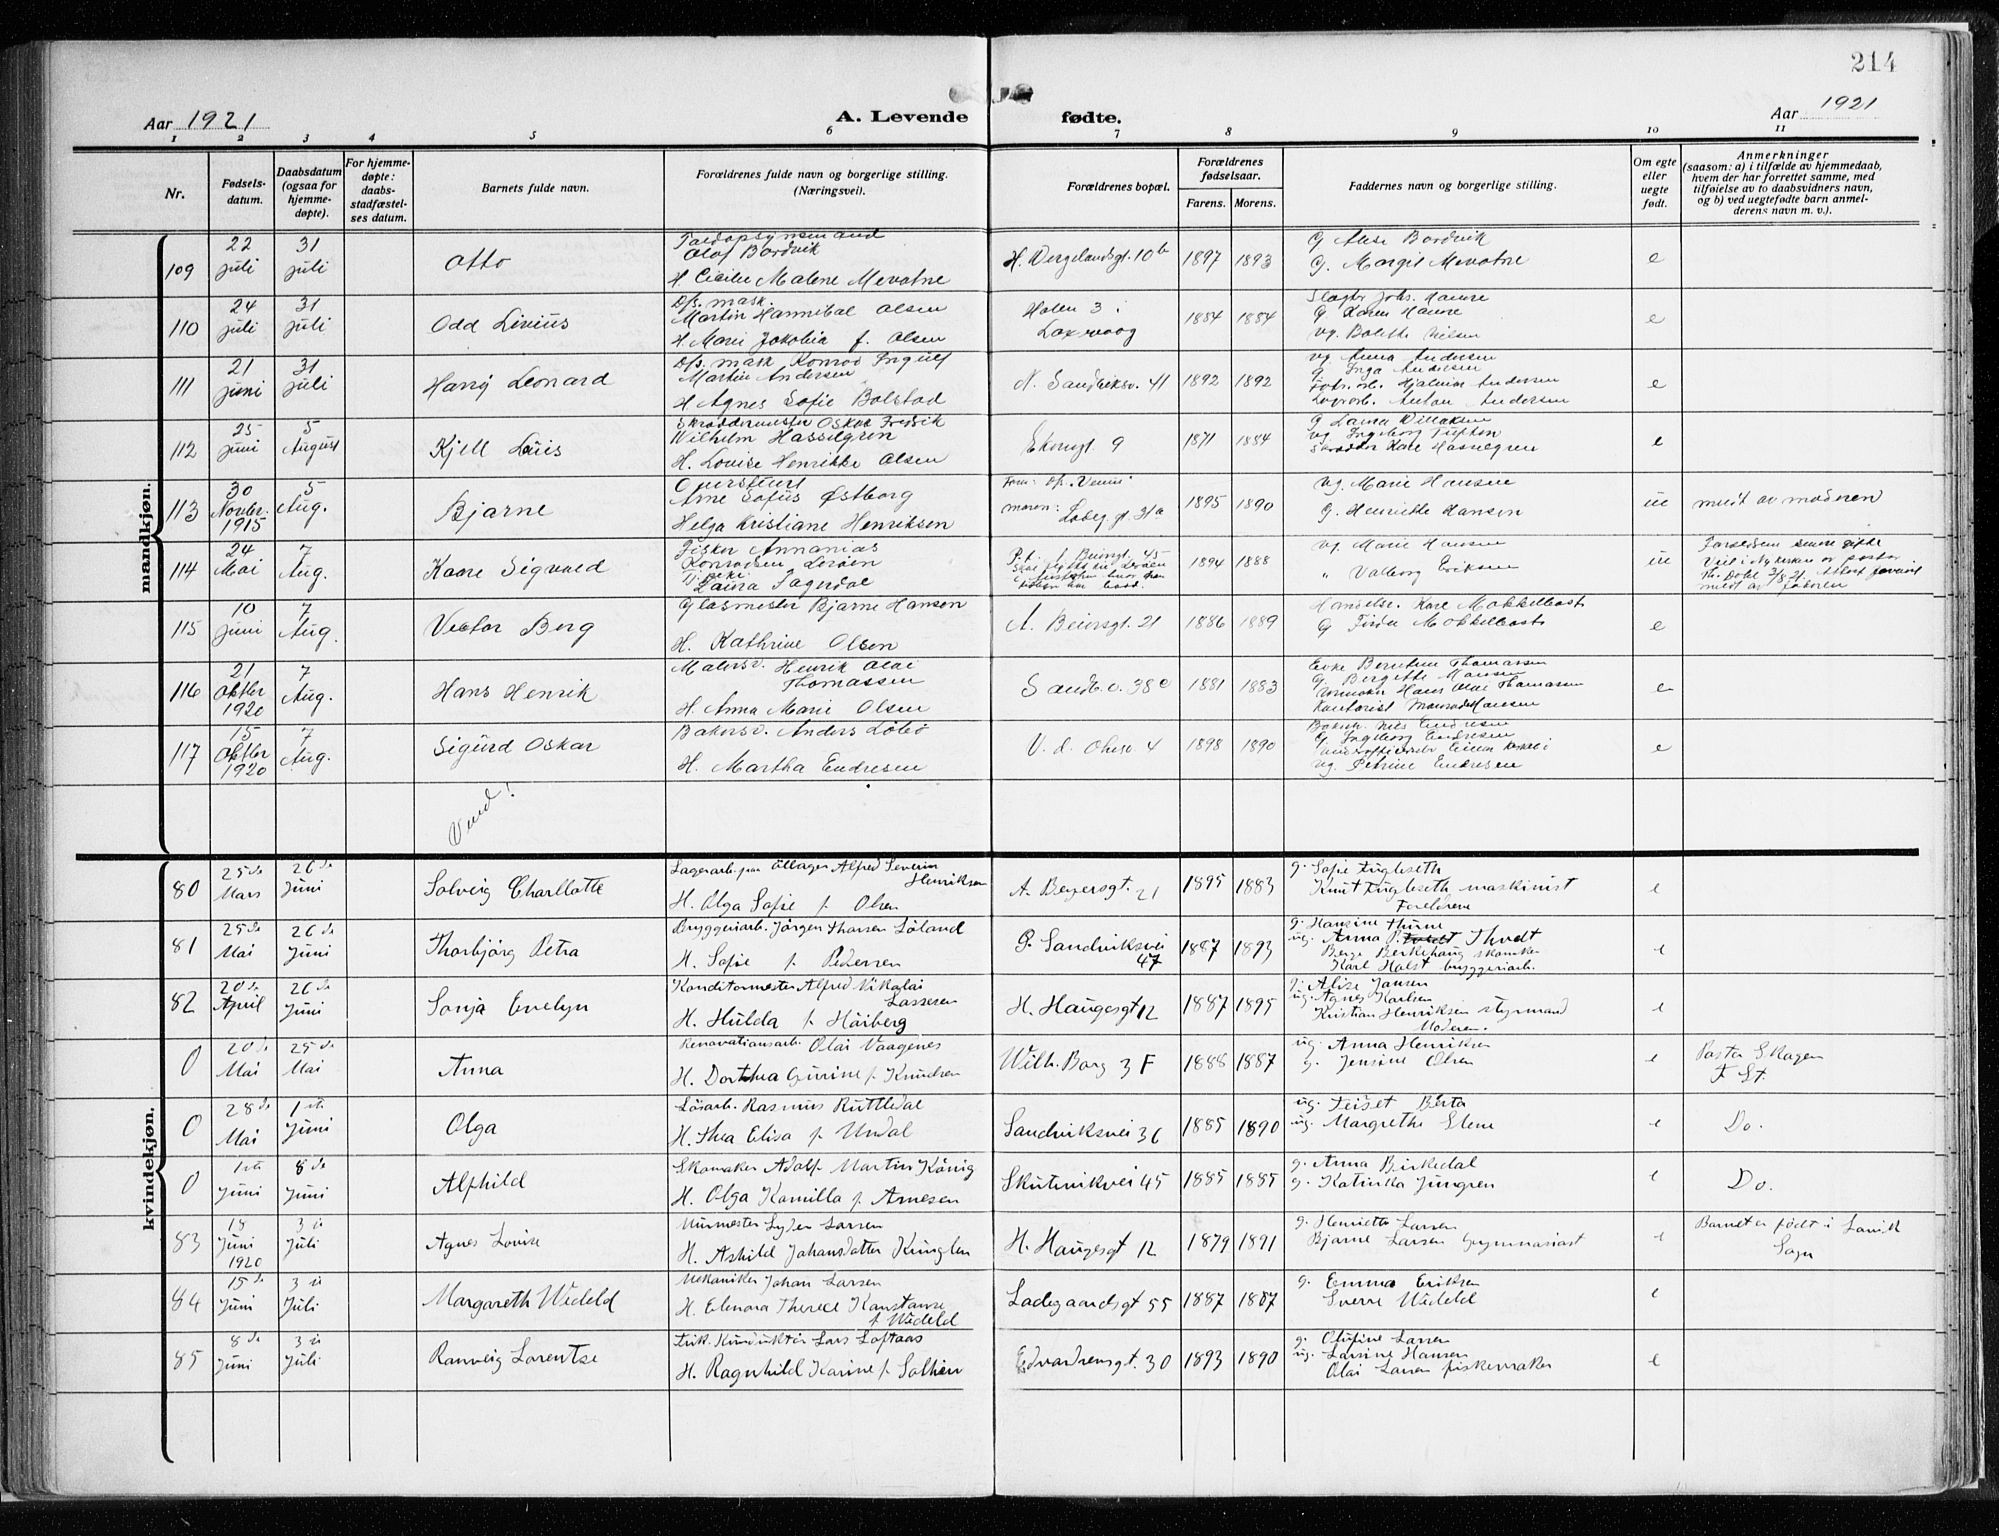 214
Aar 1921
A. Levende fødte.
Aar 1921
1 2 3 4 5 6 7 8 9 10 11
Nr.
Fødsels-
datum.
Daabsdatum
(ogsaa for
hjemme-
døpte).
For hjemme-
døpte:
daabs-
stadfæstel-
ses datum.
Barnets fulde navn.
Forældrenes fulde navn og borgerlige stilling.
(Næringsvei).
Forældrenes bopæl.
Forældrenes
fødselsaar.
Farens. Morens.
Faddernes navn og borgerlige stilling.
Om egte
eller
uegte
født.
Anmerkninger
(saasom: a) i tilfælde av hjemmedaab,
hvem der har forrettet samme, med
tilføielse av to daabsvidners navn,
og b) ved uegtefødte barn anmel-
derens navn m. v.).
mandkjøn.
109
22 juli
31 juli
Otto
Toldopsynsmand
Olaf Bordvik
H. Cicilie Malene Mevatne
H. Wergelandsgt. 10 b
1897 1893
G Alise Bordvik
G. Margit Mevatne
e
110
24 juli
31 juli
Odd Livius
Dfs. mask.
Martin Hannibal Olsen
H. Marie Jakobia f. Olsen
Holen 3 i
Laxevaag
1884 1884
Slagter Johs. Hause
G Karen Hause
ug. Bolette Nilsen
e
111
21 juni
31 juli
Harry Leonard
Dfs. mask Konrad Ingulf
Martin Andersen
H Agnes Sofie Bolstad
N. Sandviksv. 41
1892 1892
ug. Anna Andersen
g Inga Andersen
Fabr. arb. Hjalmar Andersen
Anton Andersen
e
112
25 juni
5 August
Kjell Louis
Skræddermester Oskar Fredrik
Wilhelm Hasselgren
H. Louise Henrikke Olsen
Ekrengt. 9
1871 1884
G Laura
ug Ingeborg
Skrædder Kare Hasselgren
e
113
30 Novbr. 1915
5 Aug.
Bjarne
Arne Sofus Østborg
Helga Kristiane Henriksen
Faren: D/s. "Venus"
moren: Ladeg. gt. 31a
1895 1890
ug. Marie Hansen
G. Henriette Hansen
ue
meldt av moderen
114
24 Mai
7 Aug.
Kaare Sigvald
Fisker Annanias
Konradsen Lerøen
Laura Fagerdal
P.t. A. Beiersgt. 45
Skal flytte til Lerøen
1894 1888
ug. Marie Hansen
" Valborg Eriksen
ue
Forældrene senere gifte
meldt av faderen
115
10 juni
7 Aug.
Victor Berg
Glasmester Bjarne Hansen
H. Kathrine Olsen
A. Beiersgt. 21
1886 1889
Handelsr. Kare Mokkelbost
G Mokkelbost
e
116
21 Oktbr 1920
7 Aug.
Hans Henrik
Malersv. Henrik Olai
Thomassen
H. Anna Marie Olsen
Sandv. v. 38 c
1881 1883
Enke Berntine Thomassen
G. Bergitte Monsen
Hans Olai Thomassen
Kontorist Hansen
e
117
15 Oktbr 1920
7 Aug.
Sigurd Oskar
Bakersv. Anders Løbø
H. Martha Endresen
V. d. Ohesv. 4
1898 1890
Baksv. Nils Endresen
G Ingeborg Endresen
ug. Petrine Endresen
e
Vend!
kvindekjøn.
80
25de Mars
26de Juni
Solveig Charllotte
Lagerarb. paa Øllager Alfred Severin
Henriksen
H. Olga Sofie f. Olsen
A. Beyersgt. 21
1895 1883
g. Sofie Fugleseth
Knut Fugleseth maskinist
Foreldrene
e
81
25de Mai
26de Juni
Thorbjørg Petra
Bryggeriarb. Jörgen Thorsen Löland
H. Sofie f. Pedersen
G. Sandviksvei
47
1887 1893
g. Hansine Thune
ug. Anna P. Thvedt
Berge Berkehaug skomaker
Karl Holst bryggeriarb.
e
82
20de April
26de Juni
Sonja Evelyn
Konditormester Alfred Nikolai
Lassesen
H. Hulda f. Höiberg
H. Haugesgt 12
1887 1895
g. Alise Jansen
ug. Agnes Karlsen
Kristian Henriksen styrmand
Moderen.
e
0
20de Mai
25de Mai
Anna
Renovationsarb. Olai Vaagenes
H. Dorthea Gurine f. Knudsen
Wilh. Borg 3 F
1888 1887
ug. Anna Henriksen
g. Jensine Olsen
e
Pastor Skagen
F. St.
0
28de Mai
1ste Juni
Olga
Løsarb. Rasmus Ruttledal
H. Thea Elisa f. Undal
Sandviksvei 36
1885 1890
ug. Feiset Berta
ug. Margrethe Stene
e
Do.
0
1ste Juni
8de Juni
Alfhild
Skomaker Adolf Martin König
H. Olga Kamilla f. Arnesen
Skutevikvei 45
1885 1885
g. Anna Birkedal
g. Katinka Jungren
e
Do.
83
18 Juni 1920
3die Juli
Agnes Lovise
Murmester Syver Larsen
H. Ashild Johansdatter Kvinglen
H. Haugesgt 12
1879 1891
g. Henriette Larsen
Bjarne Larsen Gymnasiast
e
Barnet er født i Lavik
Sogn
84
15de Juni
3die Juli
Margareth Wideld
Mekaniker Johan Larsen
H. Elenora Therece Konstanse
f. Wideld
Ladegaardsgt 55
1887 1887
g. Emma Eriksen
Sverre Wideld
e
85
8de Juni
3die Juli
Ranveig Lorentse
Trik. Konduktör Lars Loftaas
H. Ragnhild Karine f. Solheim
Edvardsensgt. 30
1893 1890
g. Olufine Larsen
ug. Larsine Hansen
Olai Larsen fiskemaker
e